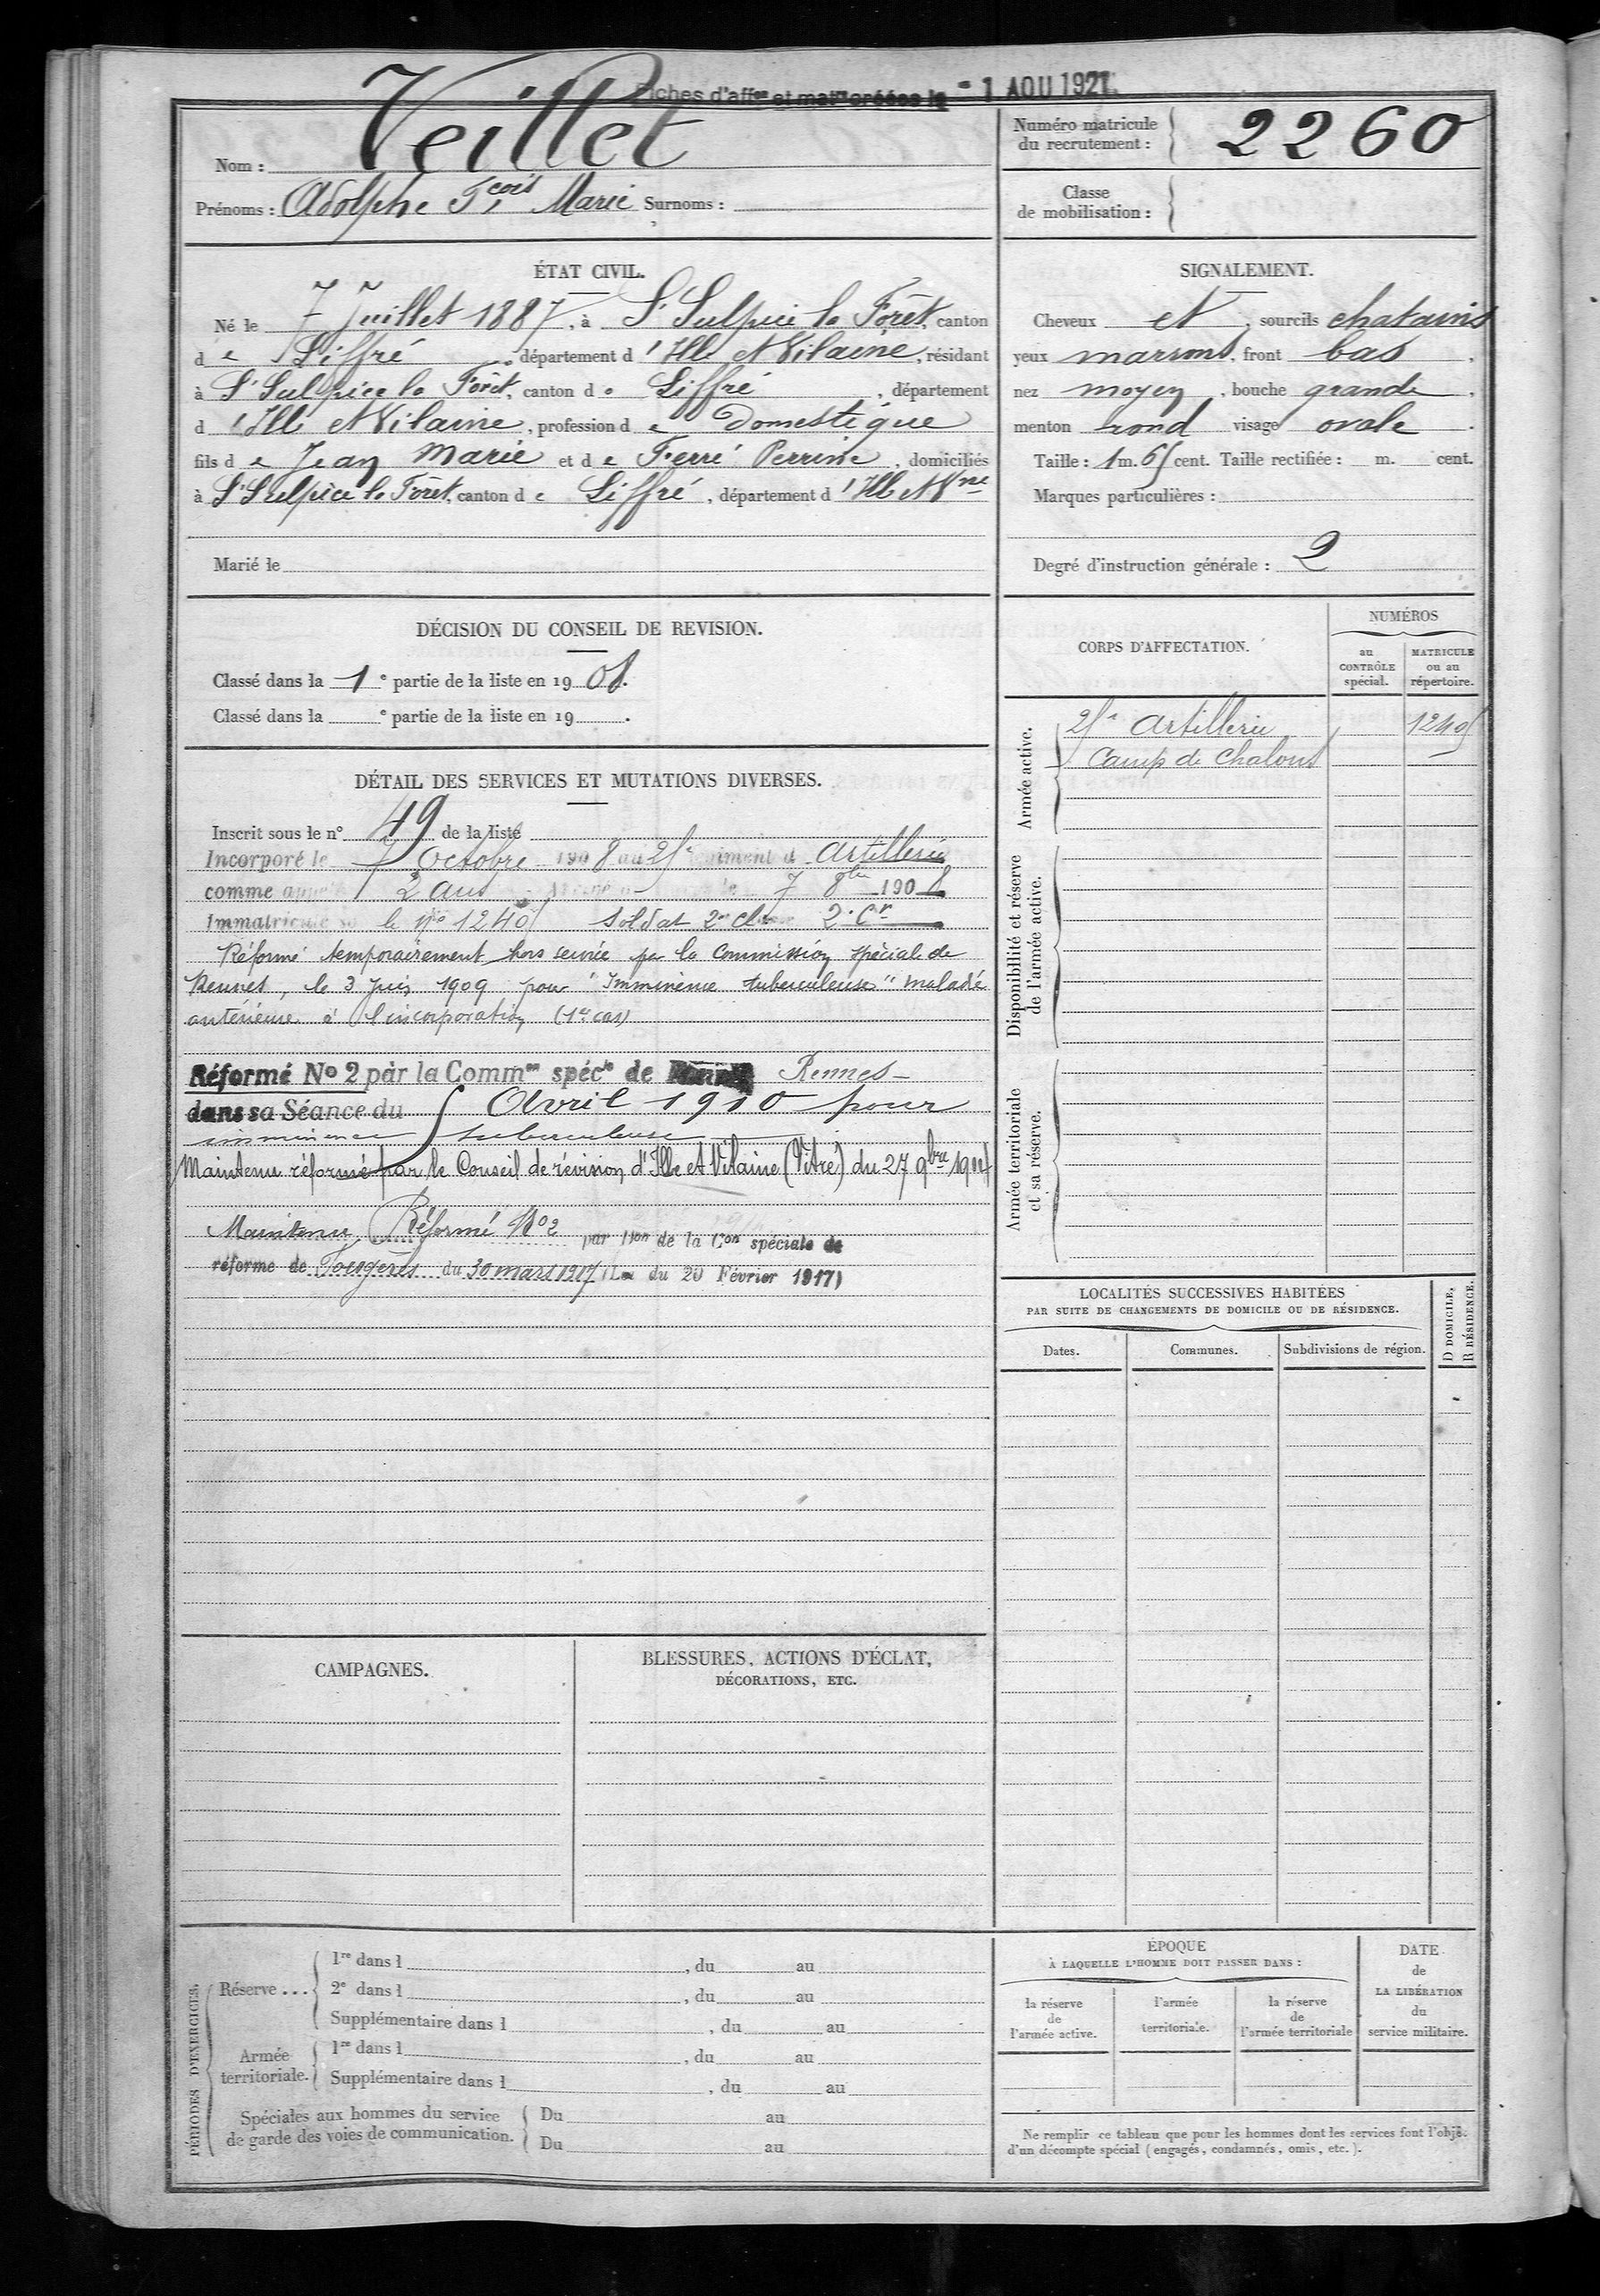 Fiches d'affon et matle créées le - 1 AOU 1921
Nom : Veillet
Prénoms : Adolphe Fcois Marie Surnoms :
Numéro matricule
du recrutement : 2260
Classe
de mobilisation :
ÉTAT CIVIL.
Né le 7 Juillet 1887, à St Sulpice la Forêt, canton
de Liffré, département d'Ille et Vilaine, résidant
à St Sulpice la Forêt, canton de Liffré, département
d'Ille et Vilaine, profession de Domestique
fils de Jean Marie et de Ferré Perrine, domiciliés
à St Sulpice la Forêt, canton de Liffré, département d'Ille et Vne
Marié le
SIGNALEMENT.
Cheveux et, sourcils chatains
yeux marrons, front bas,
nez moyen, bouche grande,
menton rond visage ovale.
Taille : 1 m. 65 cent. Taille rectifiée : m. cent.
Marques particulières :
Degré d'instruction générale : 2
DÉCISION DU CONSEIL DE REVISION.
Classé dans la 1e partie de la liste en 1908.
Classé dans la e partie de la liste en 19 .
DÉTAIL DES SERVICES ET MUTATIONS DIVERSES.
Inscrit sous le n° 49 de la liste
Incorporé le 7 Octobre 1908 au 25e régiment d'Artillerie
comme appelé 2 ans 7 8bre 1908
Immatriculé so le No 1240 Soldat 2e cl 2e Cr
Réformé temporairement hors service par la Commission spéciale de
Rennes, le 3 Juin 1909 pour "Imminence tuberculeuse" maladie
antérieure à l'incorporation (1er cas)
Réformé No 2 par la Common spécle de Rennes
dans sa Séance du 5 Avril 1910 pour
imminence tuberculeuse
Maintenu réformé par le Conseil de révision d'Ille et Vilaine (Vitré) du 27 9bre 1914
Maintenu Réformé No 2 par Don de la Con spéciale de
réforme de Fougères du 30 mars 1917 (Loi du 20 Février 1917)
CORPS D'AFFECTATION.
NUMÉROS
au
CONTRÔLE
spécial.
MATRICULE
ou au
répertoire.
Armée active.
25e Artillerie 1240
Camp de Chalons
Disponibilité et réserve
de l'armée active.
Armée territoriale
et sa réserve.
LOCALITÉS SUCCESSIVES HABITÉES
PAR SUITE DE CHANGEMENTS DE DOMICILE OU DE RÉSIDENCE.
Dates. Communes. Subdivisions de région.
D DOMICILE,
R RÉSIDENCE.
CAMPAGNES.
BLESSURES, ACTIONS D'ÉCLAT,
DÉCORATIONS, ETC.
PÉRIODES D'EXERCICES.
Réserve ...
1re dans l , du au
2e dans l , du au
Supplémentaire dans l , du au
Armée
territoriale.
1re dans l , du au
Supplémentaire dans l , du au
Spéciales aux hommes du service
de garde des voies de communication.
Du au
Du au
ÉPOQUE
À LAQUELLE L'HOMME DOIT PASSER DANS :
la réserve
de
l'armée active.
l'armée
territoriale.
la réserve
de
l'armée territoriale
DATE
de
LA LIBÉRATION
du
service militaire.
Ne remplir ce tableau que pour les hommes dont les services font l'obje
d'un décompte spécial (engagés, condamnés, omis, etc.).